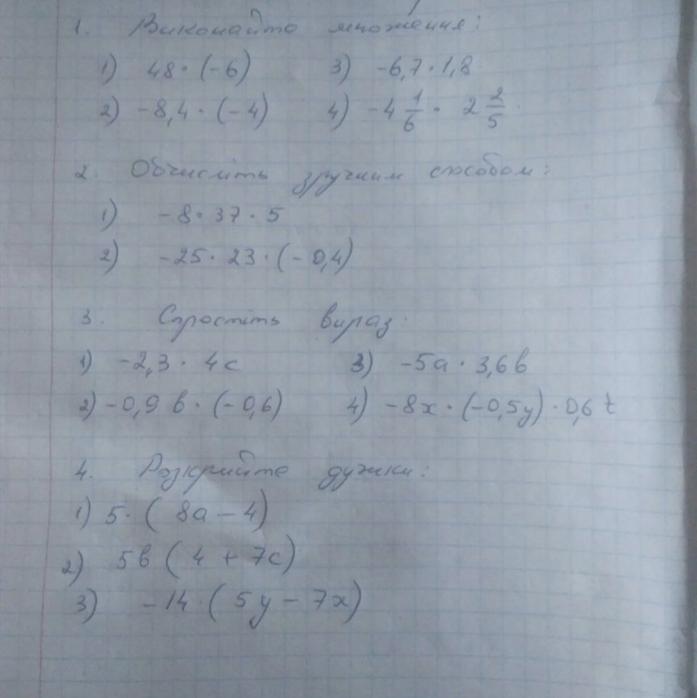 1. Виконайте множення:
1) 48 · (-6) 3) -6,7 · 1,8
2) -8,4 · (-4) 4) -4 1/6 · 2 2/5
2. Обчисліть зручним способом:
1) -8 · 37 · 5
2) -25 · 23 · (-0,4)
3. Спростіть вираз:
1) -2,3 · 4c 3) -5a · 3,6b
2) -0,9b · (-0,6) 4) -8x · (-0,5y) · 0,6t
4. Розкрийте дужки:
1) 5 · (8a - 4)
2) 5b (4 + 7c)
3) -14 · (5y - 7x)